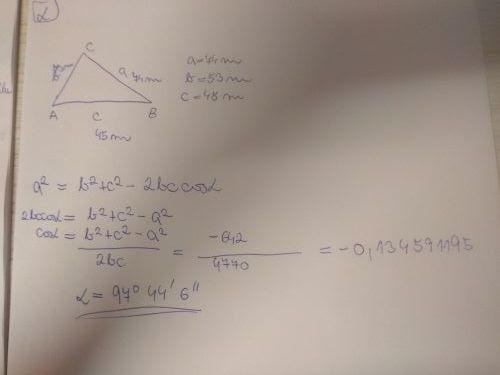 C
b a 74m
A c B
45m
a=74m
b=53m
c=45m
a² = b²+c² - 2bc cosα
2bccosα = b²+c² - a²
cosα = b²+c² - a² / 2bc = -642 / 4770 = -0,134591195
α = 97° 44' 6''